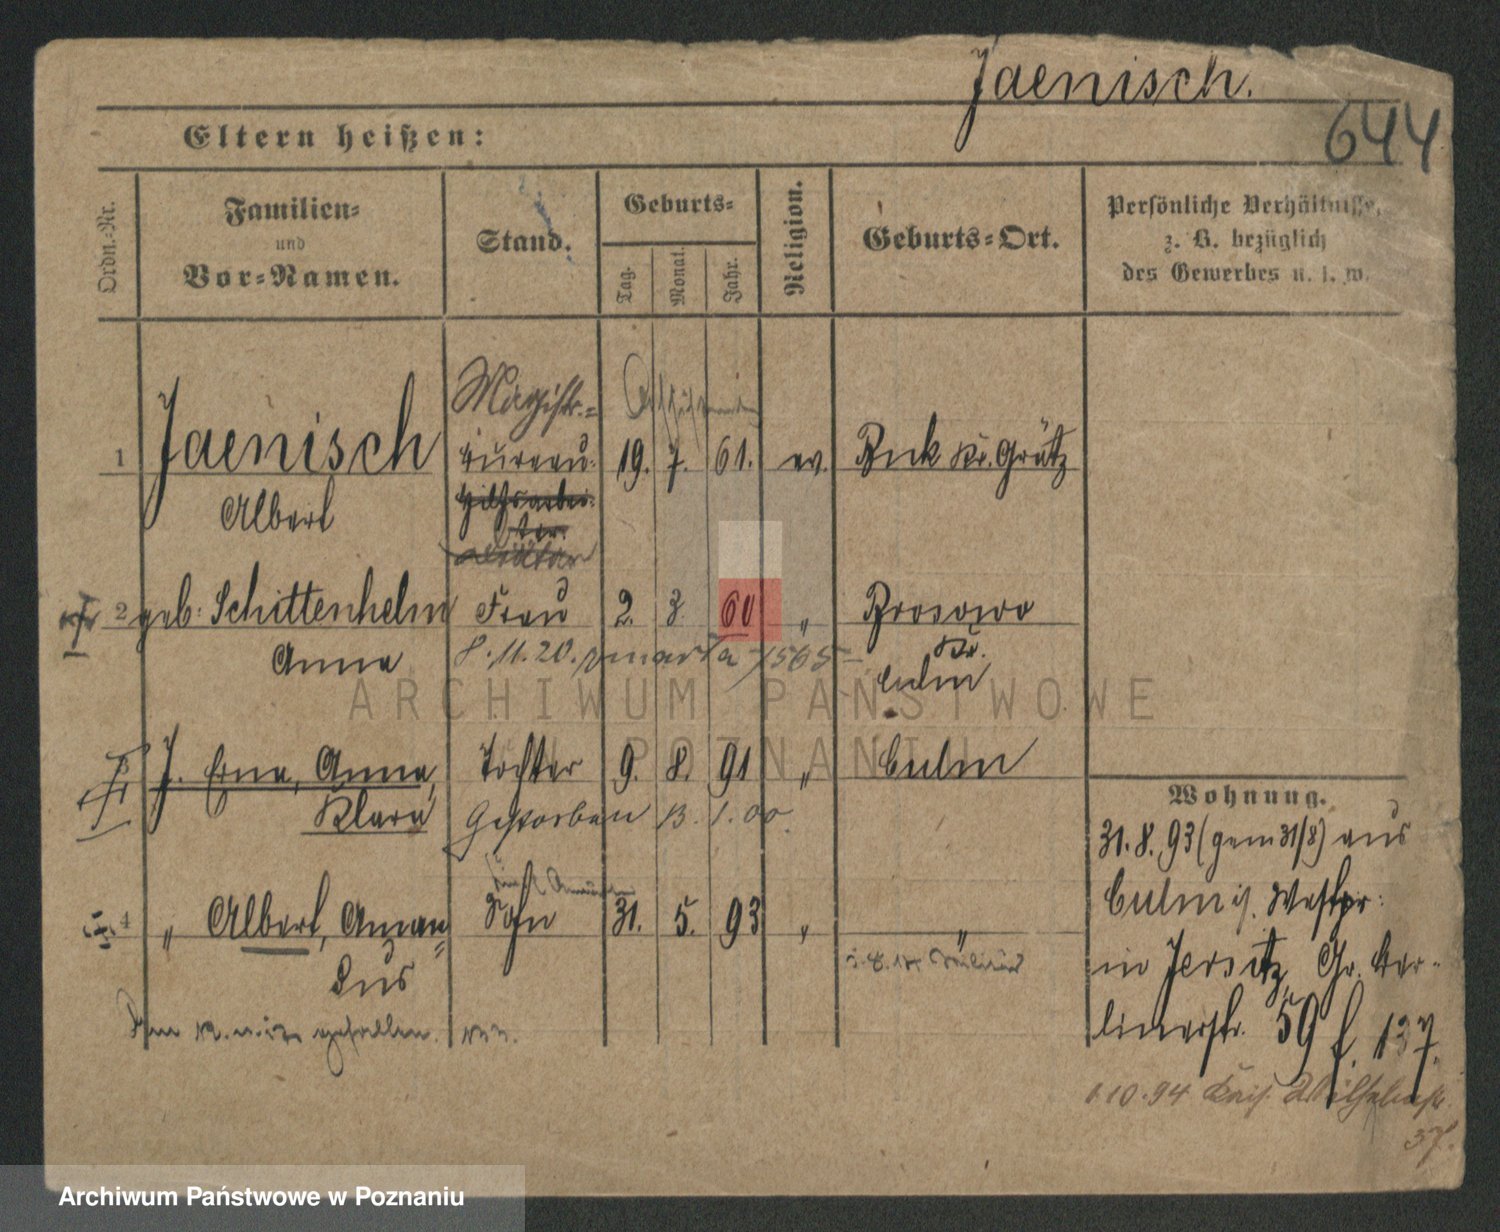 Jaenisch.
644
Eltern heißen:
Ordn.-Nr.
Familien-
und
Vor-Namen.
Stand.
Geburts-
Tag.
Monat.
Jahr.
Religion.
Geburts-Ort.
Persönliche Verhältnisse,
z. B. bezüglich
des Gewerbes u. s. w.
Magistr.-
1 Jaenisch bureau- 19. 7. 61. ev. Buk Kr. Grätz
Albert Hilfsarbei-
ter
2 geb: Schittenhelm Frau 2. 3 60 " Brosowo
Anna 8.11.20. zmarła 1565 Kr.
Culm
J. Erna, Anna, Tochter 9. 8. 91 " Culm
Klara Gestorben 13. 1. 00.
4 " Albert, Aman= Sohn 31. 5. 93 " "
dus
Am gefallen.
Wohnung.
31.8.93 (gem 31/8) aus
Culm i. Westpr:
in Jersitz, Gr. Ber-
linerstr. 59 f. 137.
1.10.94 Kais. Wilhelmstr.
37.
ARCHIWUM PAŃSTWOWE
W POZNANIU
Archiwum Państwowe w Poznaniu